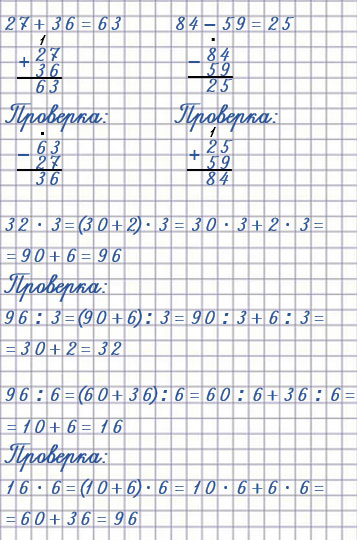 27+36=63 84-59=25
1 .
+ 27 - 84
36 59
63 25
Проверка: Проверка:
. 1
- 63 + 25
27 59
36 84
32 · 3=(30+2)· 3 = 30 · 3+2 · 3=
=90+6=96
Проверка:
96 : 3=(90+6): 3 = 90 : 3+6 : 3=
=30+2=32
96 : 6=(60+36): 6 = 60 : 6+36 : 6=
=10+6= 16
Проверка:
16 · 6=(10+6)· 6 = 10 · 6+6 · 6=
=60+36=96